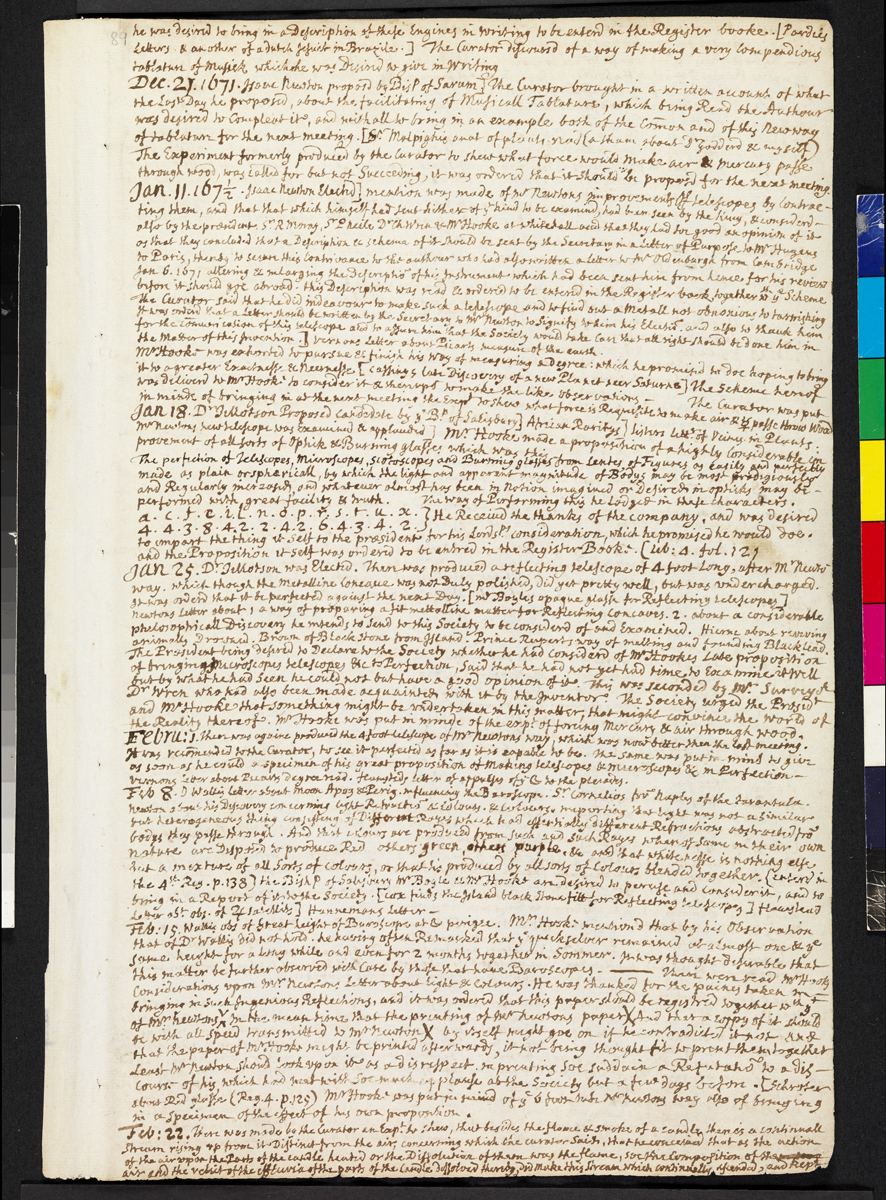 89
he was desired to bring in a Description of these Engines in writing to be enterd in the Register booke. [Pardies
Letters & another of a dutch Jesuit in Brazile.] The Curator discoursd of a way of making a very compendious
tablature of Musick which he was Desired to give in Writing
Dec. 21. 1671. Isaac Newton proposd by Bisp. of Sarum] The Curator brought in a written account of what
the Last Day he proposed, about the facilitating of Musicall Tablature, which being Read the Authour
was desired to Compleat it, and withall to bring in an example both of the Common and of this New way
of tablature for the next meeting. [Sr Malpighis anat of plants read (a tham about Dr Goddard & my self)
The Experiment formerly produced by the Curator to shew what force would make air & mercury passe
through wood, was calld for but not Succeeding, it was ordered that it should be proposd for the next meeting.
Jan. 11. 167½. Isaac Newton Elected] mention was made of mr Newtons improvements of telescopes by contrac-
ting them, and that that which himself had sent hither of ye kind to be examind, had been seen by the King, & considerd
also by the president Sr. R Moray, Sr. P Neile Dr Ch Wren & Mr Hooke at whitehall and that they had soe good an opinion of it
as that they concluded that a Description & scheme of it should be sent by the Secretary in a Letter of Purpose to Mr Hugens
to Paris, thereby to secure this Contrivance to the authour who had also written a letter to Mr Oldenburgh from Cambridge
Jan 6. 1671 altering & enlarging the Descriptio of his Instrument which had been sent him from hence for his review
before it should goe abroad. this Description was read & orderd to be enterd in the Register book together wth ye Scheme
The Curator said that he did indeavour to make such a telescope and to find out a Metall not obnoxious to tarnishing
It was orderd that a Letter should be written by the Secretary to Mr Newton to Signify to him his Electio. and also to thank him
for the communication of this telescope also to assure him that the Society would take Care that all right should be done him in
the Matter of this Invention] Vernons Letter about Picarts measure of the earth.
Mr Hooke was exhorted to pursue & finish his way of measuring a Degree: which he promised to doe hoping to bring
it to a greater Exactnesse & Neernesse [Cassinys late Discovery of a new Planet neer Saturne] The Scheme hereof
was deliverd to Mr Hooke to consider it & therups to make the like observations — The Curator was put
in minde of bringing in at the next meeting the Expt to shew what force is Requisite to make air & ☿ passe through Wood
Jan 18. Dr. Tillotson Proposed candidate by ye Bp. of Salisbury] African Raritys] Listers Lettr of Veins in Plants
Mr Newtons new telescope was examined & applauded] Mr. Hooke made a proposition of a highly Considerable im
provement of all sorts of Optick & Burning glasses which was this
The perfection of Telescopes, Microscopes, Scotoscopes and Burning glasses from Lentes, of Figures as easily and perfectly
made as plain or sphericall, by which the light and apparent magnitude of Bodys may be most prodigiously
and Regularly increased, and whatever almost has been in Notion imagined or Desired in opticks may be -
performed with great facility & truth. The way of Performing this he Lodged in these characters.
a. c. f. e. i. l. n. o. p. r. s. t. u. x. } He Receivd the thanks of the company, and was desired
4. 4. 3. 8. 4. 2. 2. 4. 2. 6. 4. 3. 4. 2. }
to impart the thing it self to the president for his Lordsp. consideration, which he promised he would doe.
and the Proposition it self was orderd to be entred in the Register Booke. [Lib: 4. fol. 121
Jan 25. Dr. Tillotson was Elected. There was produced a reflecting telescope of 4 foot Long, after Mr Newto's
way. which though the Metalline Concave was not Duly polished, did yet pretty well, but was undercharged.
It was orderd that it be perfected against the next Day. [Mr Boyles opaque glasse for Reflecting telescopes]
Newtons Letter about 1 a way of preparing a fit mettalline matter for Reflecting Concaves. 2. about a considerable
philosophicall Discovery he intends to Send to this Society to be considerd of and Examined. Hierne about reviving
animalls Drowned. Brown of Black stone from Island. Prince Ruperts way of melting and founding Black lead.
The President being desired to Declare to the Society whether he had considerd of Mr Hookes Late proposition
of bringing Microscopes telescopes &c to Perfection, Said that he had not yet had time to Examine it Well
but by what he had seen he could not but have a good opinion of it. This was seconded by Mr. Surveyor
Dr Wren who had also been made acquainted with it by the Inventor. The Society urged the Presidt
and Mr Hooke that something might be undertaken in this matter, that might convince the World of
the Reality thereof. Mr Hooke was put in minde of the expt. of forcing Mercury & air through wood.
Febru: 1. there was againe produced the 4 foot telescope of Mr Newtons way, which was now better then the last meeting.
It was recomended to the Curator, to see it perfected as far as it is capable to be. the same was put in mind to give
as soon as he could a specimen of his great proposition of Making telescopes & microscopes &c in Perfection -
vernons Letter about Picarts degree read. Flamsteeds letter of appulses of ☽ & to the pleiades.
Feb 8. D Wallis Letter about Moon Apog & Perig. Influencing the Baroscope. Sr. Cornelius fro Naples of the Tarantula.
Newton about his Discovery concerning Light Refractio & Colours. importing that Light was not a Similar
but heterogeneous thing consisting of Different Rayes which had essentially different Refractions abstracted fro
bodys they passe through. And that colours are produced from such and such Rayes wherof some in their own
nature are Disposd to produce Red others green, others purple. &c and that whitenesse is nothing else
but a mixture of all Sorts of Colours, or that tis produced by all sorts of Colours blended together. (enterd in
the 4th. Reg. p. 138] the Bishp of Salisbury Mr Boyle & Mr Hooke are desired to peruse and consider it, and to
bring in a Report of it to the Society. [Cox finds the Island black stone fitt for Reflecting telescopes] Flamsteed
Letter abt. obs. of ♃ satellits] Hannemans Letter —
Feb. 15. Wallis obs of great height of Baroscopes at ☾ perigee. Mr. Hooke mentiond that by his Observation
that of Dr Wallis did not hold. he having often Remarked that ye quicksilver remained at almost one & ye
same height for a long while and even for 2 months together in Sommer. It was thought desirable that
this matter be further observed with Care by those that have Baroscopes. —— There were read Mr Hooks
Considerations upon Mr. Newtons Letter about Light & Colours. He was thanked for the paines taken in
bringing in such Ingenious Reflections, and it was ordered that this paper should be registred together wth yt
of Mr Newtons X In the mean time that the printing of Mr Newtons paper X And that a coppy of it should
be with all speed transmitted to Mr Newton X by itself might goe on if he contradicted it not and
that the paper of Mr Hooke might be printed afterwards, it not being thought fit to print them together
Least Mr Newton should look upon it as a disrespect, in printing soe suddain a Refutatio to a dis-
course of his which had met with Soe much applause at the Society but a few days before. [Schroter
about Red glasse (Reg. 4. p. 125) Mr Hooke was put in mind of ye 6 foot tube Mr Newtons way also of bringing
in a Specimen of the effect of his own proportion.
Feb: 22. There was made by the Curator an Expt. to shew, that besides the flame & smoke of a candle there is a continuall
stream rising up from it Distinct from the air concerning which the Curator Said, that he conceived that as the action
of the air upon the Parts of the Candle heated or the Dissolution of them was the flame, soe the Composition of the
air and the rest of the effluvia of the parts of the Candle dissolved thereby, did make this stream which continually ascended, and kept